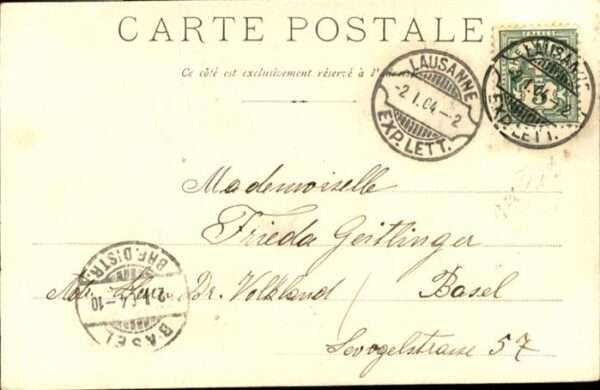 CARTE POSTALE
Ce côté est exclusivement réservé à l'
LAUSANNE
-2.I.04-2
EXP. LETT.
FRANCO
5
LAUSANNE
I.04
EXP. LETT.
Mademoiselle
Frieda Geitlinger
Dr. Volkland / Basel
Sevogelstrasse 57
BRF. DISTR.
BASEL